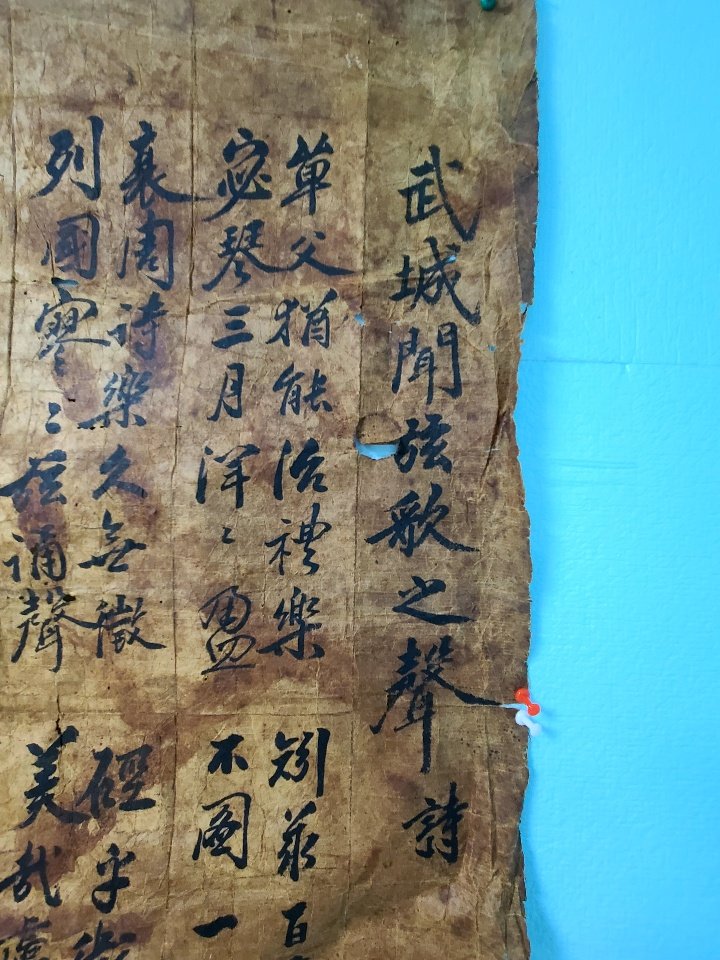 武城聞弦歌之聲詩
單父猶能治禮樂
宓琴三月洋〻盈
衰周詩樂久無徵
列國寥〻弦誦聲
矧茲百
不圖一
硜乎
美哉